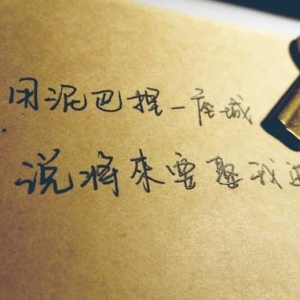 用泥巴捏一座城
说将來要娶我进